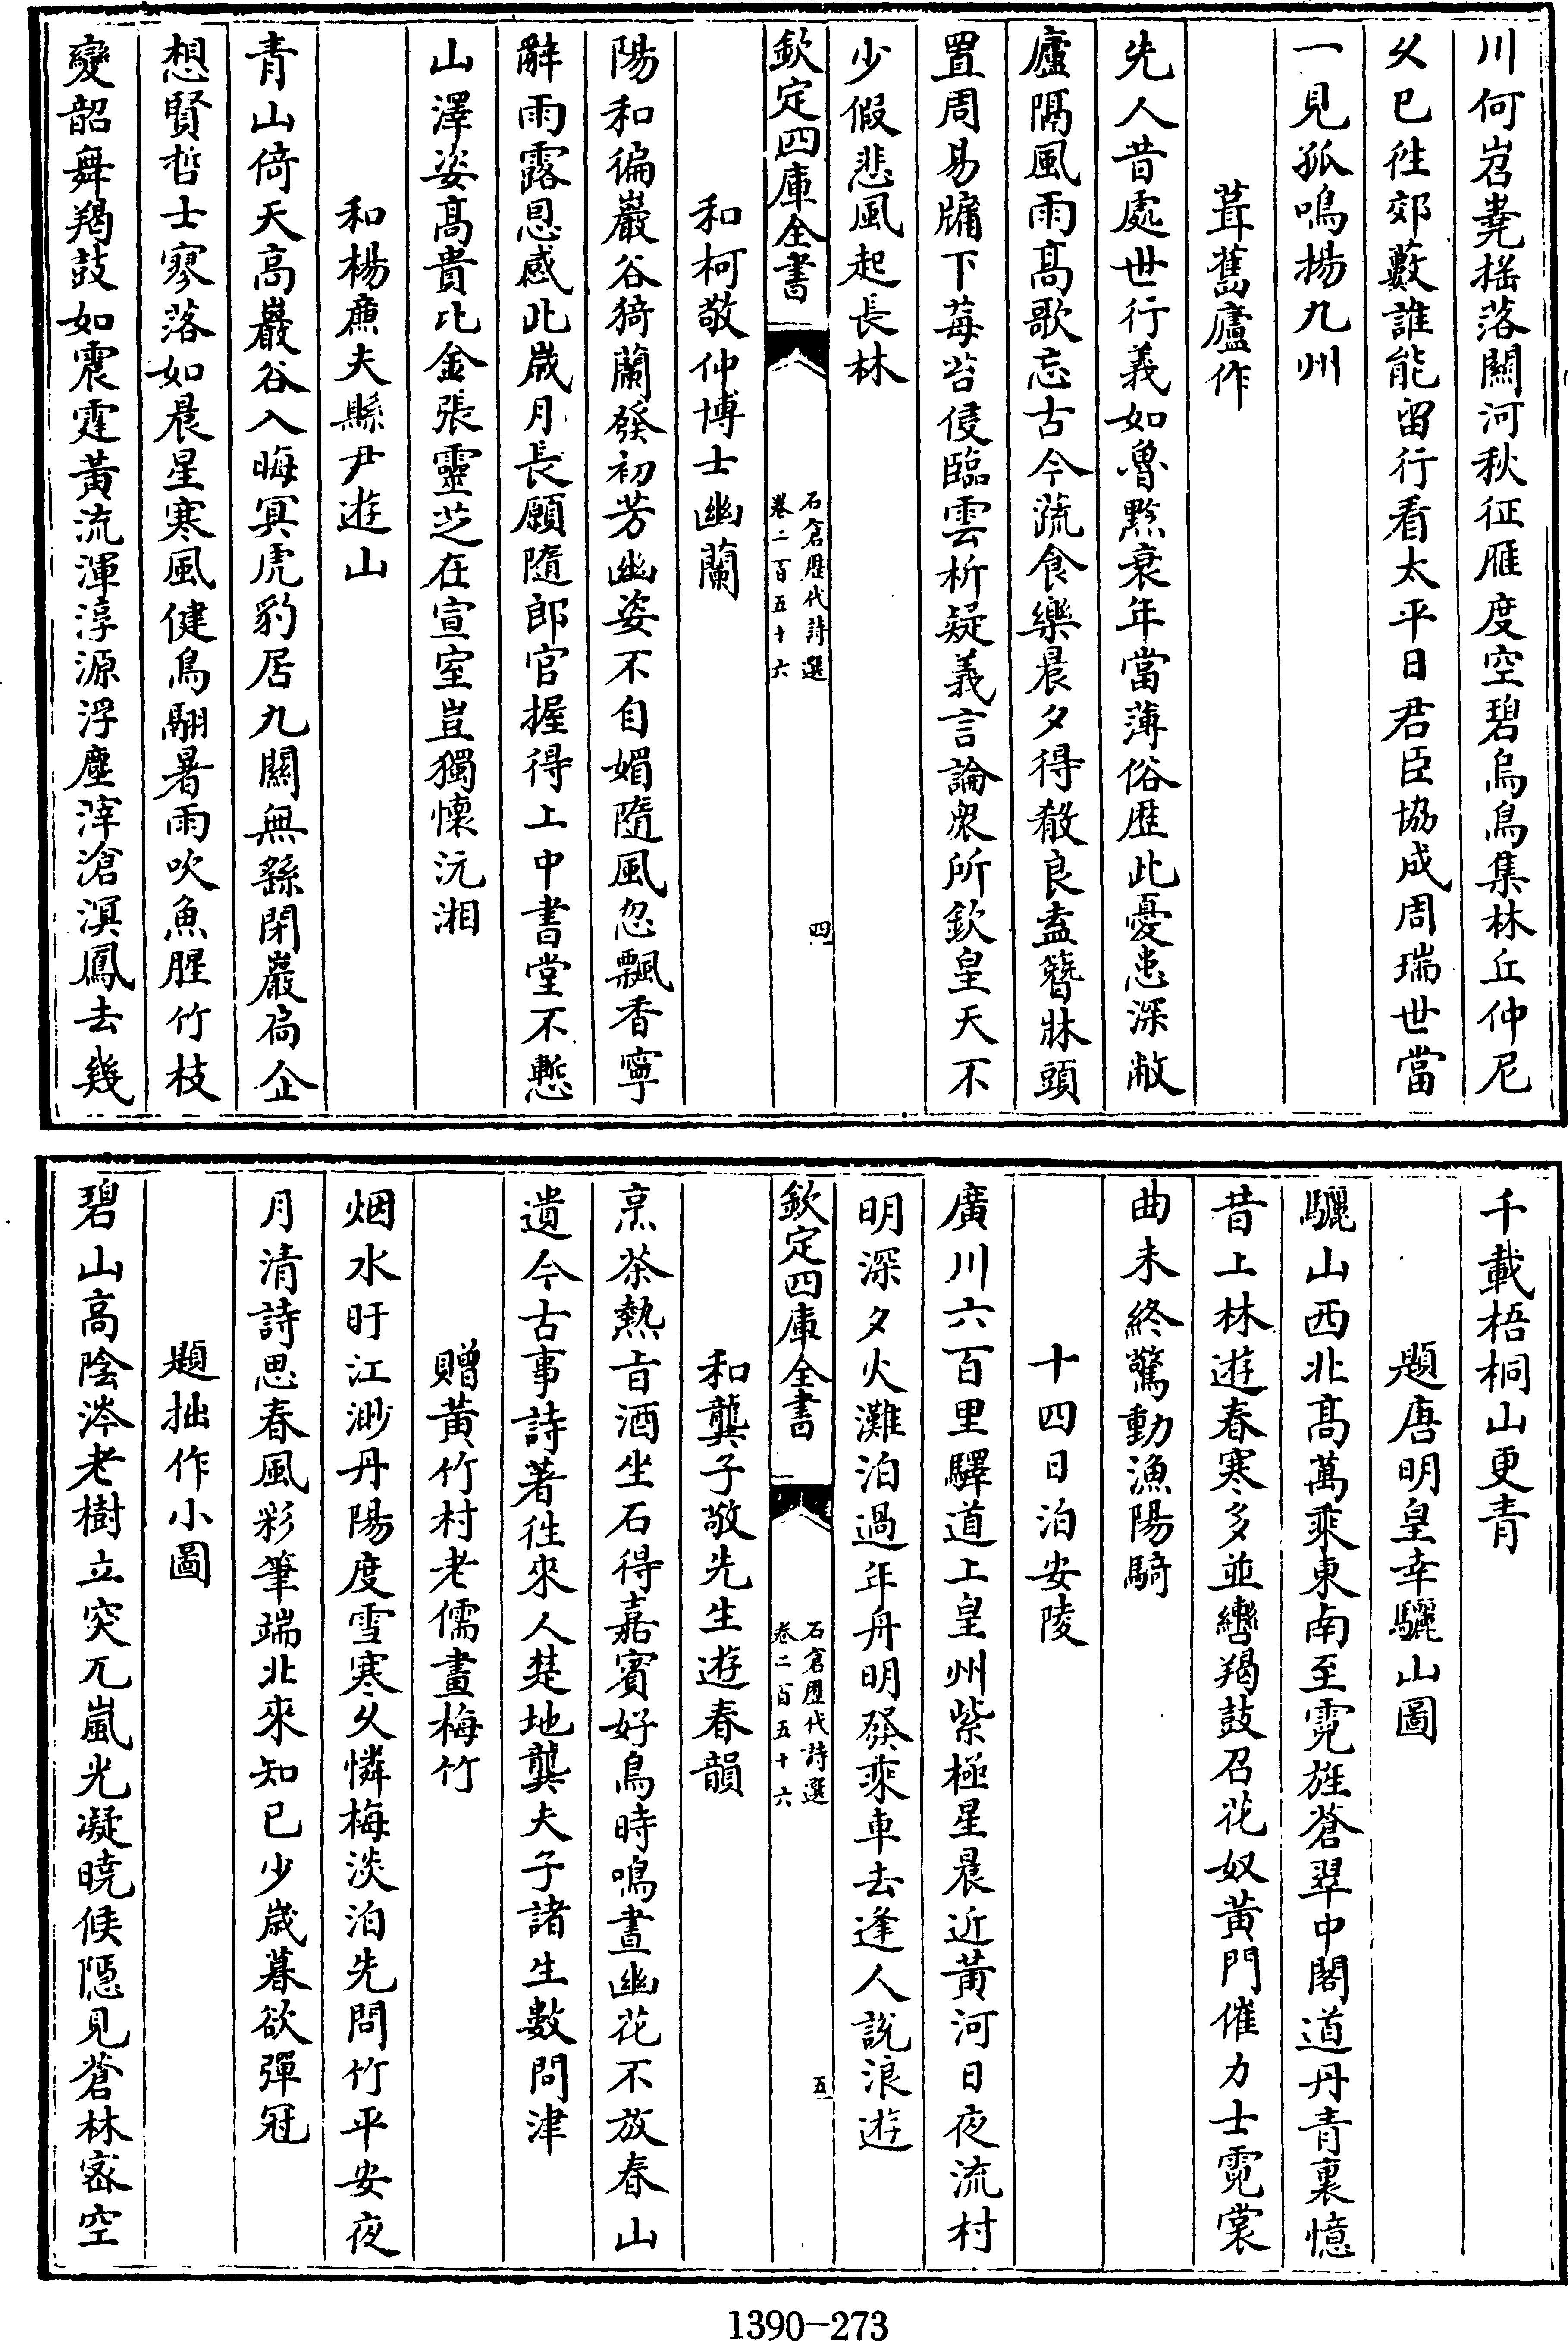 川何岧嶤揺落關河秋征雁度空碧烏鳥集林丘仲尼
久已徃郊藪誰能留行看太平日君臣協成周瑞世當
一見孤鳴揚九州
葺舊廬作
先人昔處世行義如魯黔衰年當薄俗歴此憂患深敝
廬隔風雨髙歌忘古今蔬食樂晨夕得殽良盍簪牀頭
置周易牖下莓苔侵臨雲析疑義言論衆所欽皇天不
少假悲風起長林
欽定四庫全書
石倉歴代詩選
卷二百五十六
四
和柯敬仲博士幽蘭
陽和徧巖谷猗蘭發初芳幽姿不自媚隨風忽飄香寧
辭雨露恩感此歳月長願隨郎官握得上中書堂不慙
山澤姿髙貴比金張靈芝在宣室豈獨懷沅湘
和楊廉夫縣尹遊山
青山倚天高巖谷入晦冥虎豹居九關無繇閉巖扃企
想賢哲士寥落如晨星寒風健鳥翮暑雨吹魚腥竹枝
變韶舞羯鼓如震霆黃流渾淳源浮塵滓滄溟鳳去幾
千載梧桐山更青
題唐明皇幸驪山圖
驪山西北髙萬乘東南至霓旌蒼翠中閣道丹青裏憶
昔上林遊春寒多並轡羯鼓召花奴黃門催力士霓裳
曲未終驚動漁陽騎
十四日泊安陵
廣川六百里驛道上皇州紫極星晨近黃河日夜流村
明深夕火灘泊過年舟明發乘車去逢人説浪遊
欽定四庫全書
石倉歴代詩選
卷二百五十六
五
和龔子敬先生遊春韻
烹茶熱㫖酒坐石得嘉賓好鳥時鳴晝幽花不放春山
遺今古事詩著徃來人楚地龔夫子諸生數問津
贈黃竹村老儒畫梅竹
烟水盱江渺丹陽度雪寒久憐梅淡泊先問竹平安夜
月清詩思春風彩筆端北來知已少歳暮欲彈冠
題拙作小圖
碧山高隂涔老樹立突兀嵐光凝曉候隱見蒼林宻空
1390-273